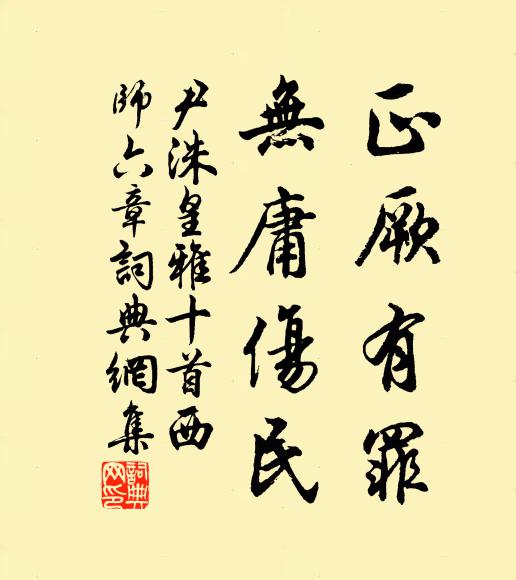 正厥有罪
無庸傷民
尹洙皇雅十首西
師六章詞典網集
詞典
网印